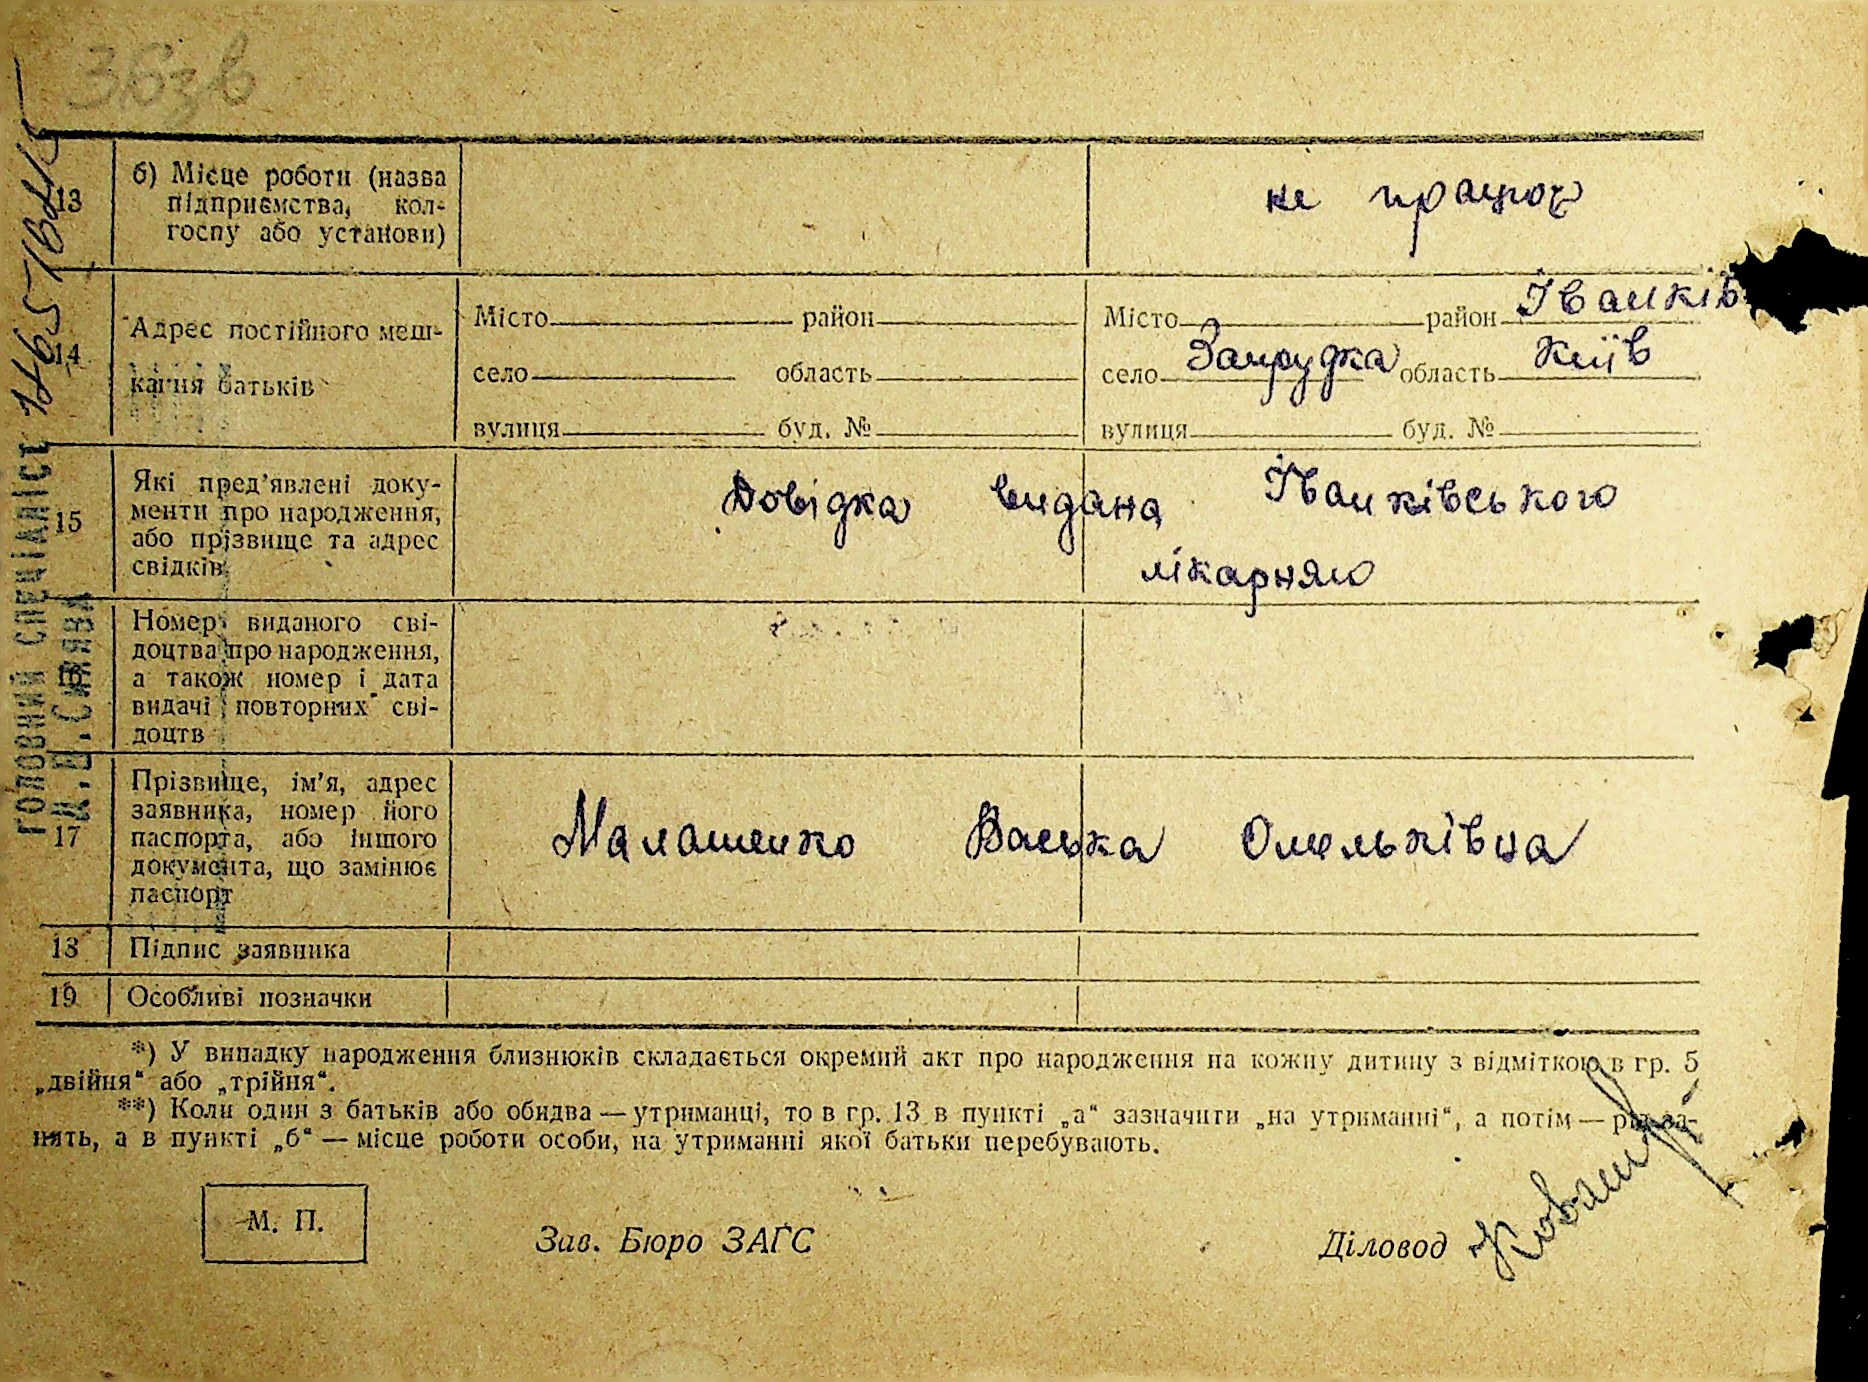 36зв
13 б) Місце роботи (назва підприємства, колгоспу або установи) не працює
14 Адрес постійного мешкання батьків
Місто район Місто район Іванків
село область село Запрудка область Київ
вулиця буд. № вулиця буд. №
15 Які пред’явлені документи про народження, або прізвище та адрес свідків
Довідка видана Іванківського
лікарняю
16 Номер виданого свідоцтва про народження, а також номер і дата видачі повторних свідоцтв
17 Прізвище, ім’я, адрес заявника, номер його паспорта, або іншого документа, що замінює паспорт
Малашенко Васька Омельківна
18 Підпис заявника
19 Особливі позначки
*) У випадку народження близнюків складається окремий акт про народження на кожну дитину з відміткою в гр. 5
„двійня“ або „трійня“.
**) Коли один з батьків або обидва — утриманці, то в гр. 13 в пункті „а“ зазначити „на утриманні“, а потім — рід за-
нять, а в пункті „б“ — місце роботи особи, на утриманні якої батьки перебувають.
М. П. Зав. Бюро ЗАГС Діловод
ГОЛОВНИЙ СПЕЦІАЛІСТ